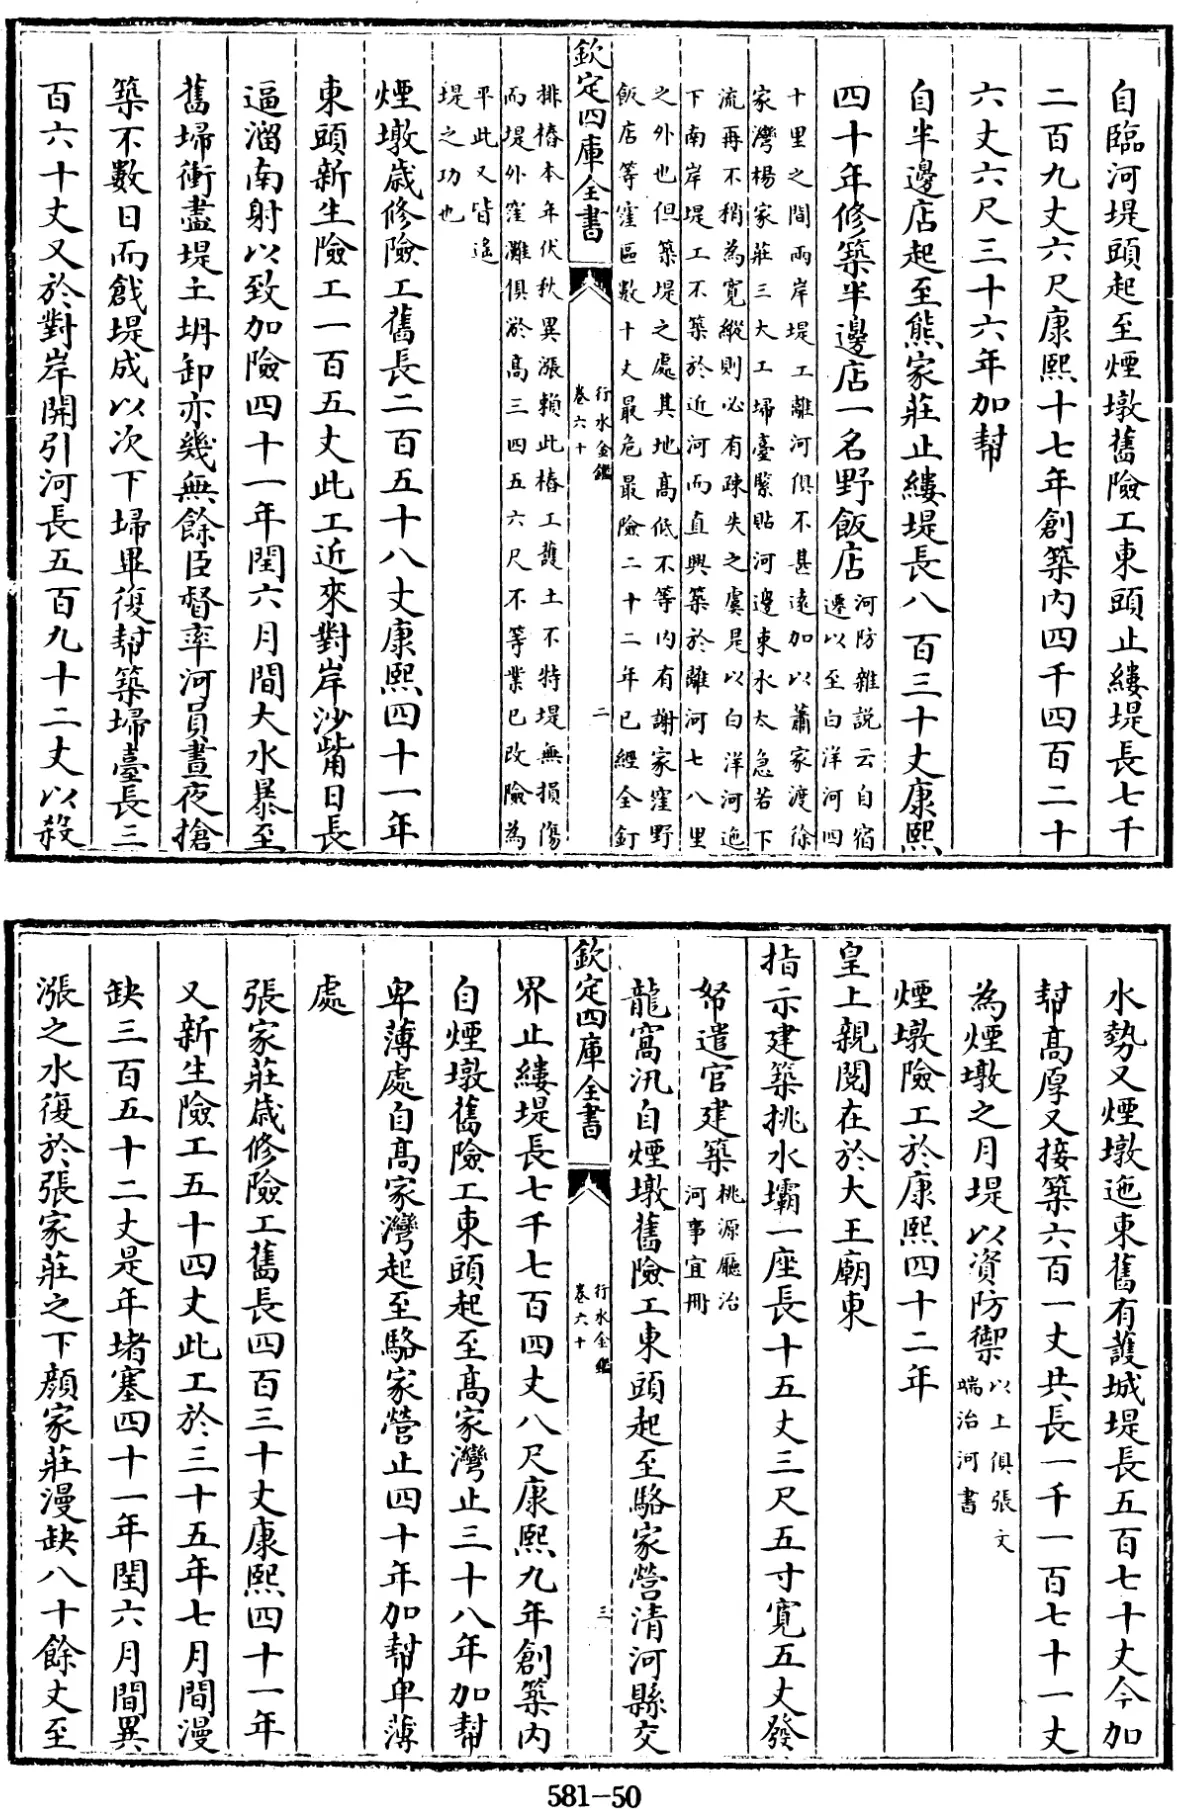 自臨河堤頭起至煙墩舊險工東頭止縷堤長七千
二百九丈六尺康熙十七年創築内四千四百二十
六丈六尺三十六年加幫
自半邊店起至熊家莊止縷堤長八百三十丈康熙
四十年修築半邊店一名野飯店
河防雜説云自宿
遷以至白洋河四
十里之間兩岸堤工離河俱不甚遠加以蕭家渡徐
家灣楊家莊三大工埽臺緊貼河邊束水太急若下
流再不稍為寛縱則必有疎失之虞是以白洋河迤
下南岸堤工不築於近河而直興築於離河七八里
之外也但築堤之處其地高低不等内有謝家窪野
飯店等窪區數十丈最危最險二十二年已經全釘
欽定四庫全書
行水金鑑
卷六十
二
排樁本年伏秋異漲賴此樁工護土不特堤無損傷
而堤外窪灘俱淤高三四五六尺不等業已改險為
平此又皆遥
堤之功也
煙墩歲修險工舊長二百五十八丈康熙四十一年
東頭新生險工一百五丈此工近來對岸沙嘴日長
逼溜南射以致加險四十一年閏六月間大水暴至
舊埽衝盡堤土坍卸亦幾無餘臣督率河員晝夜搶
築不數日而戧堤成以次下埽畢復幫築埽臺長三
百六十丈又於對岸開引河長五百九十二丈以殺
水勢又煙墩迤東舊有護城堤長五百七十丈今加
幫高厚又接築六百一丈共長一千一百七十一丈
為煙墩之月堤以資防禦
以上俱張文
端治河書
煙墩險工於康熙四十二年
皇上親閲在於大王廟東
指示建築挑水壩一座長十五丈三尺五寸寛五丈發
帑遣官建築
桃源廳治
河事宜冊
龍窩汛自煙墩舊險工東頭起至駱家營清河縣交
欽定四庫全書
行水金鑑
卷六十
三
界止縷堤長七千七百四丈八尺康熙九年創築内
自煙墩舊險工東頭起至高家灣止三十八年加幫
卑薄處自高家灣起至駱家營止四十年加幫卑薄
處
張家莊歲修險工舊長四百三十丈康熙四十一年
又新生險工五十四丈此工於三十五年七月間漫
缺三百五十二丈是年堵塞四十一年閏六月間異
漲之水復於張家莊之下顔家莊漫缺八十餘丈至
581-50